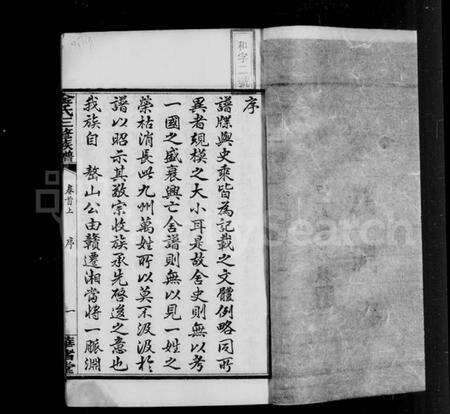 和字二號
序
譜牒與史乘皆為記載之文體例略同所
異者規模之大小耳是故舍史則無以考
一國之盛衰興亡舍譜則無以見一姓之
榮枯消長此九州萬姓所以莫不汲汲於
譜以昭示其敬宗收族承先啓後之意也
我族自 嶅山公由贛遷湘當將一脈淵
氏三修族譜
卷首上 序 一